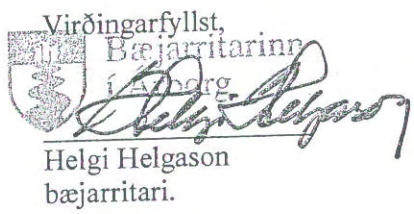 Virðingarfyllst,
Bæjarritarinn
í Árborg
Helgi Helgason
Helgi Helgason
bæjarritari.